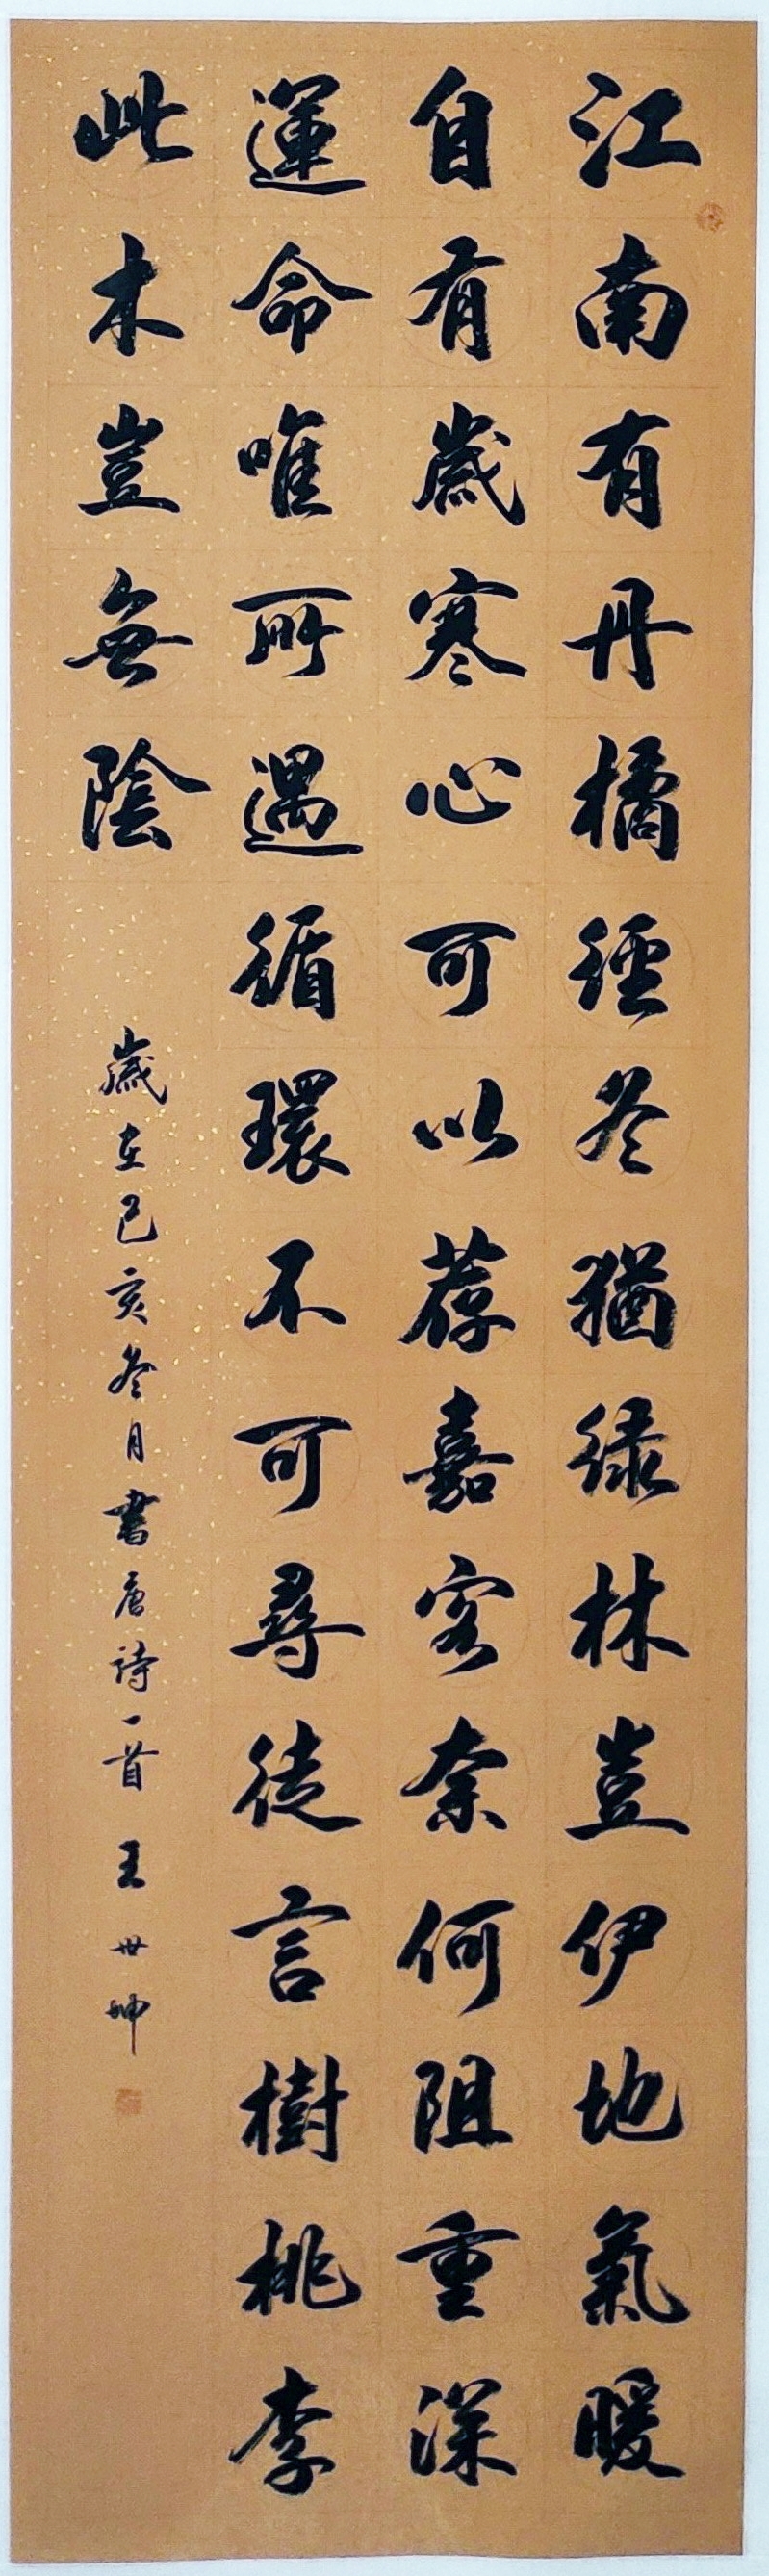 江南有丹橘經冬猶绿林豈伊地氣暖
自有歲寒心可以荐嘉客奈何阻重深
運命唯所遇循環不可尋徒言樹桃李
此木豈無陰
歲在己亥冬月書唐詩一首 王世坤